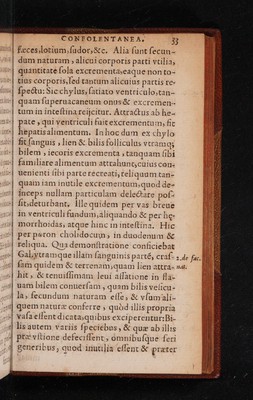 CONFOLENTANEA. 53
fæces, lotium, sudor, &c. Alia sunt secun-
dum naturam, alicui corporis parti vtilia,
quantitate sola excrementa, eaque non to-
tius corporis, sed tantum alicuius partis re-
spectu: Sic chylus, satiato ventriculo, tan-
quam superuacaneum onus & excremen-
tum in intestina reijcitur. Attractus ab he-
pate, qui ventriculi fuit excrementum, fit
hepatis alimentum. In hoc dum ex chylo
fit sanguis, lien & bilis folliculus vtramq;
bilem, iecoris excrementa, tanquam sibi
familiare alimentum attrahunt, cuius con-
uenienti sibi parte recreati, reliquum tan-
quam iam inutile excrementum, quod de-
inceps nullam particulam delectare pos-
sit, deturbant. Ille quidem per vas breue
in ventriculi fundum, aliquando & per hę-
morrhoidas, atque hinc in intestina. Hic
per poron cholidocum, in duodenum &
reliqua. Qua demonstratione conficiebat
Gal. vtramque illam sanguinis partē, cras-
2. de fac.
sam quidem & terrenam, quam lien attra-
nat.
hit, & tenuissimam leui assatione in fla-
uam bilem conuersam, quam bilis vesicu-
la, secundum naturam esse, & vsum ali-
quem naturæ conferre, quòd illis propria
vasa essent dicata, quibus exciperentur: Bi-
lis autem variis speciebus, & quæ ab illis
præ vstione defecissent, omnibusque seri
generibus, quod inutilia essent & præter